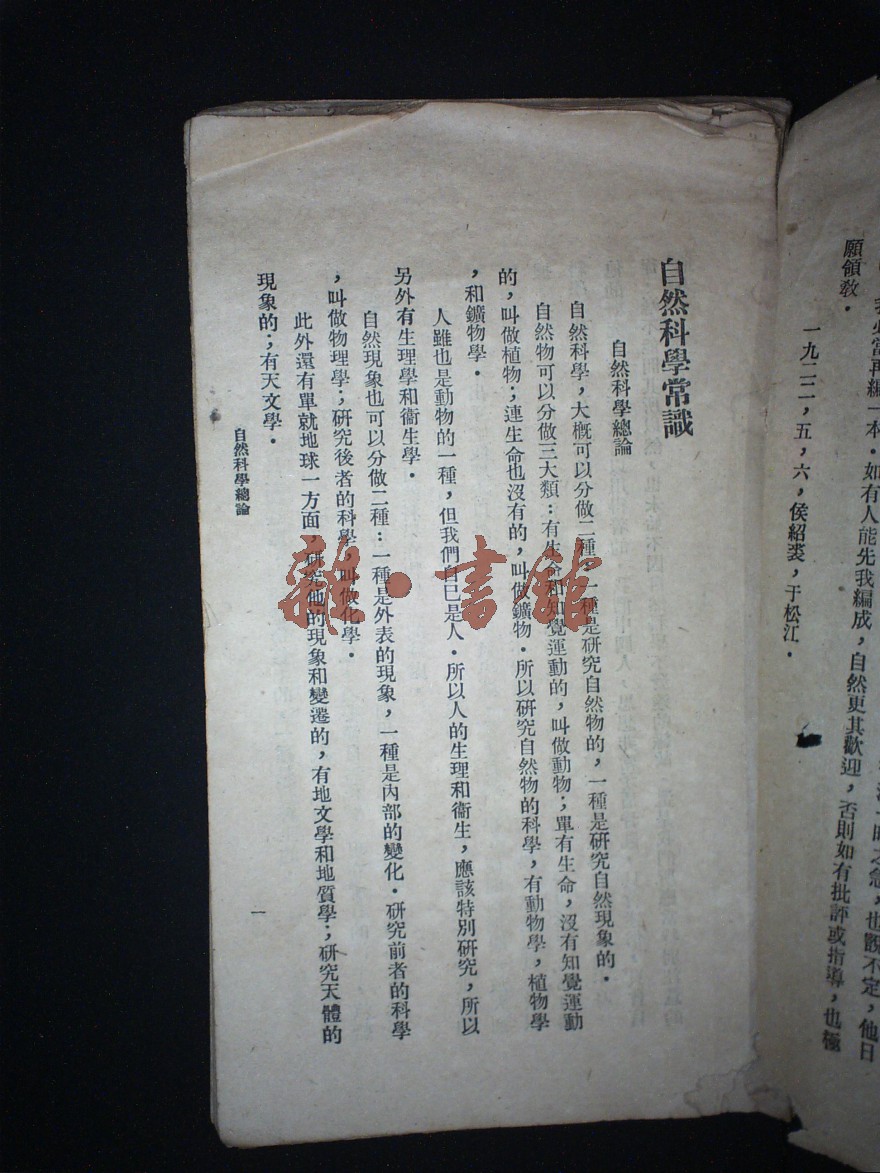 我必當再編一本．如有人能先我編成，自然更其歡迎，否則如有批評或指導，也極
願領教．
一九二二，五，六，侯紹裘，于松江．
自然科學常識
自然科學總論
自然科學，大概可以分做二種，一種是研究自然物的，一種是研究自然現象的．
自然物可以分做三大類：有生命和知覺運動的，叫做動物；單有生命，沒有知覺運動
的，叫做植物；連生命也沒有的，叫做鑛物．所以研究自然物的科學，有動物學，植物學
，和鑛物學．
人雖也是動物的一種，但我們自巳是人．所以人的生理和衞生，應該特別研究，所以
另外有生理學和衞生學．
自然現象也可以分做二種：一種是外表的現象，一種是內部的變化．研究前者的科學
，叫做物理學；研究後者的科學，叫做化學．
此外還有單就地球一方面，研究他的現象和變遷的，有地文學和地質學；研究天體的
現象的；有天文學．
自然科學總論
一
雜·書館